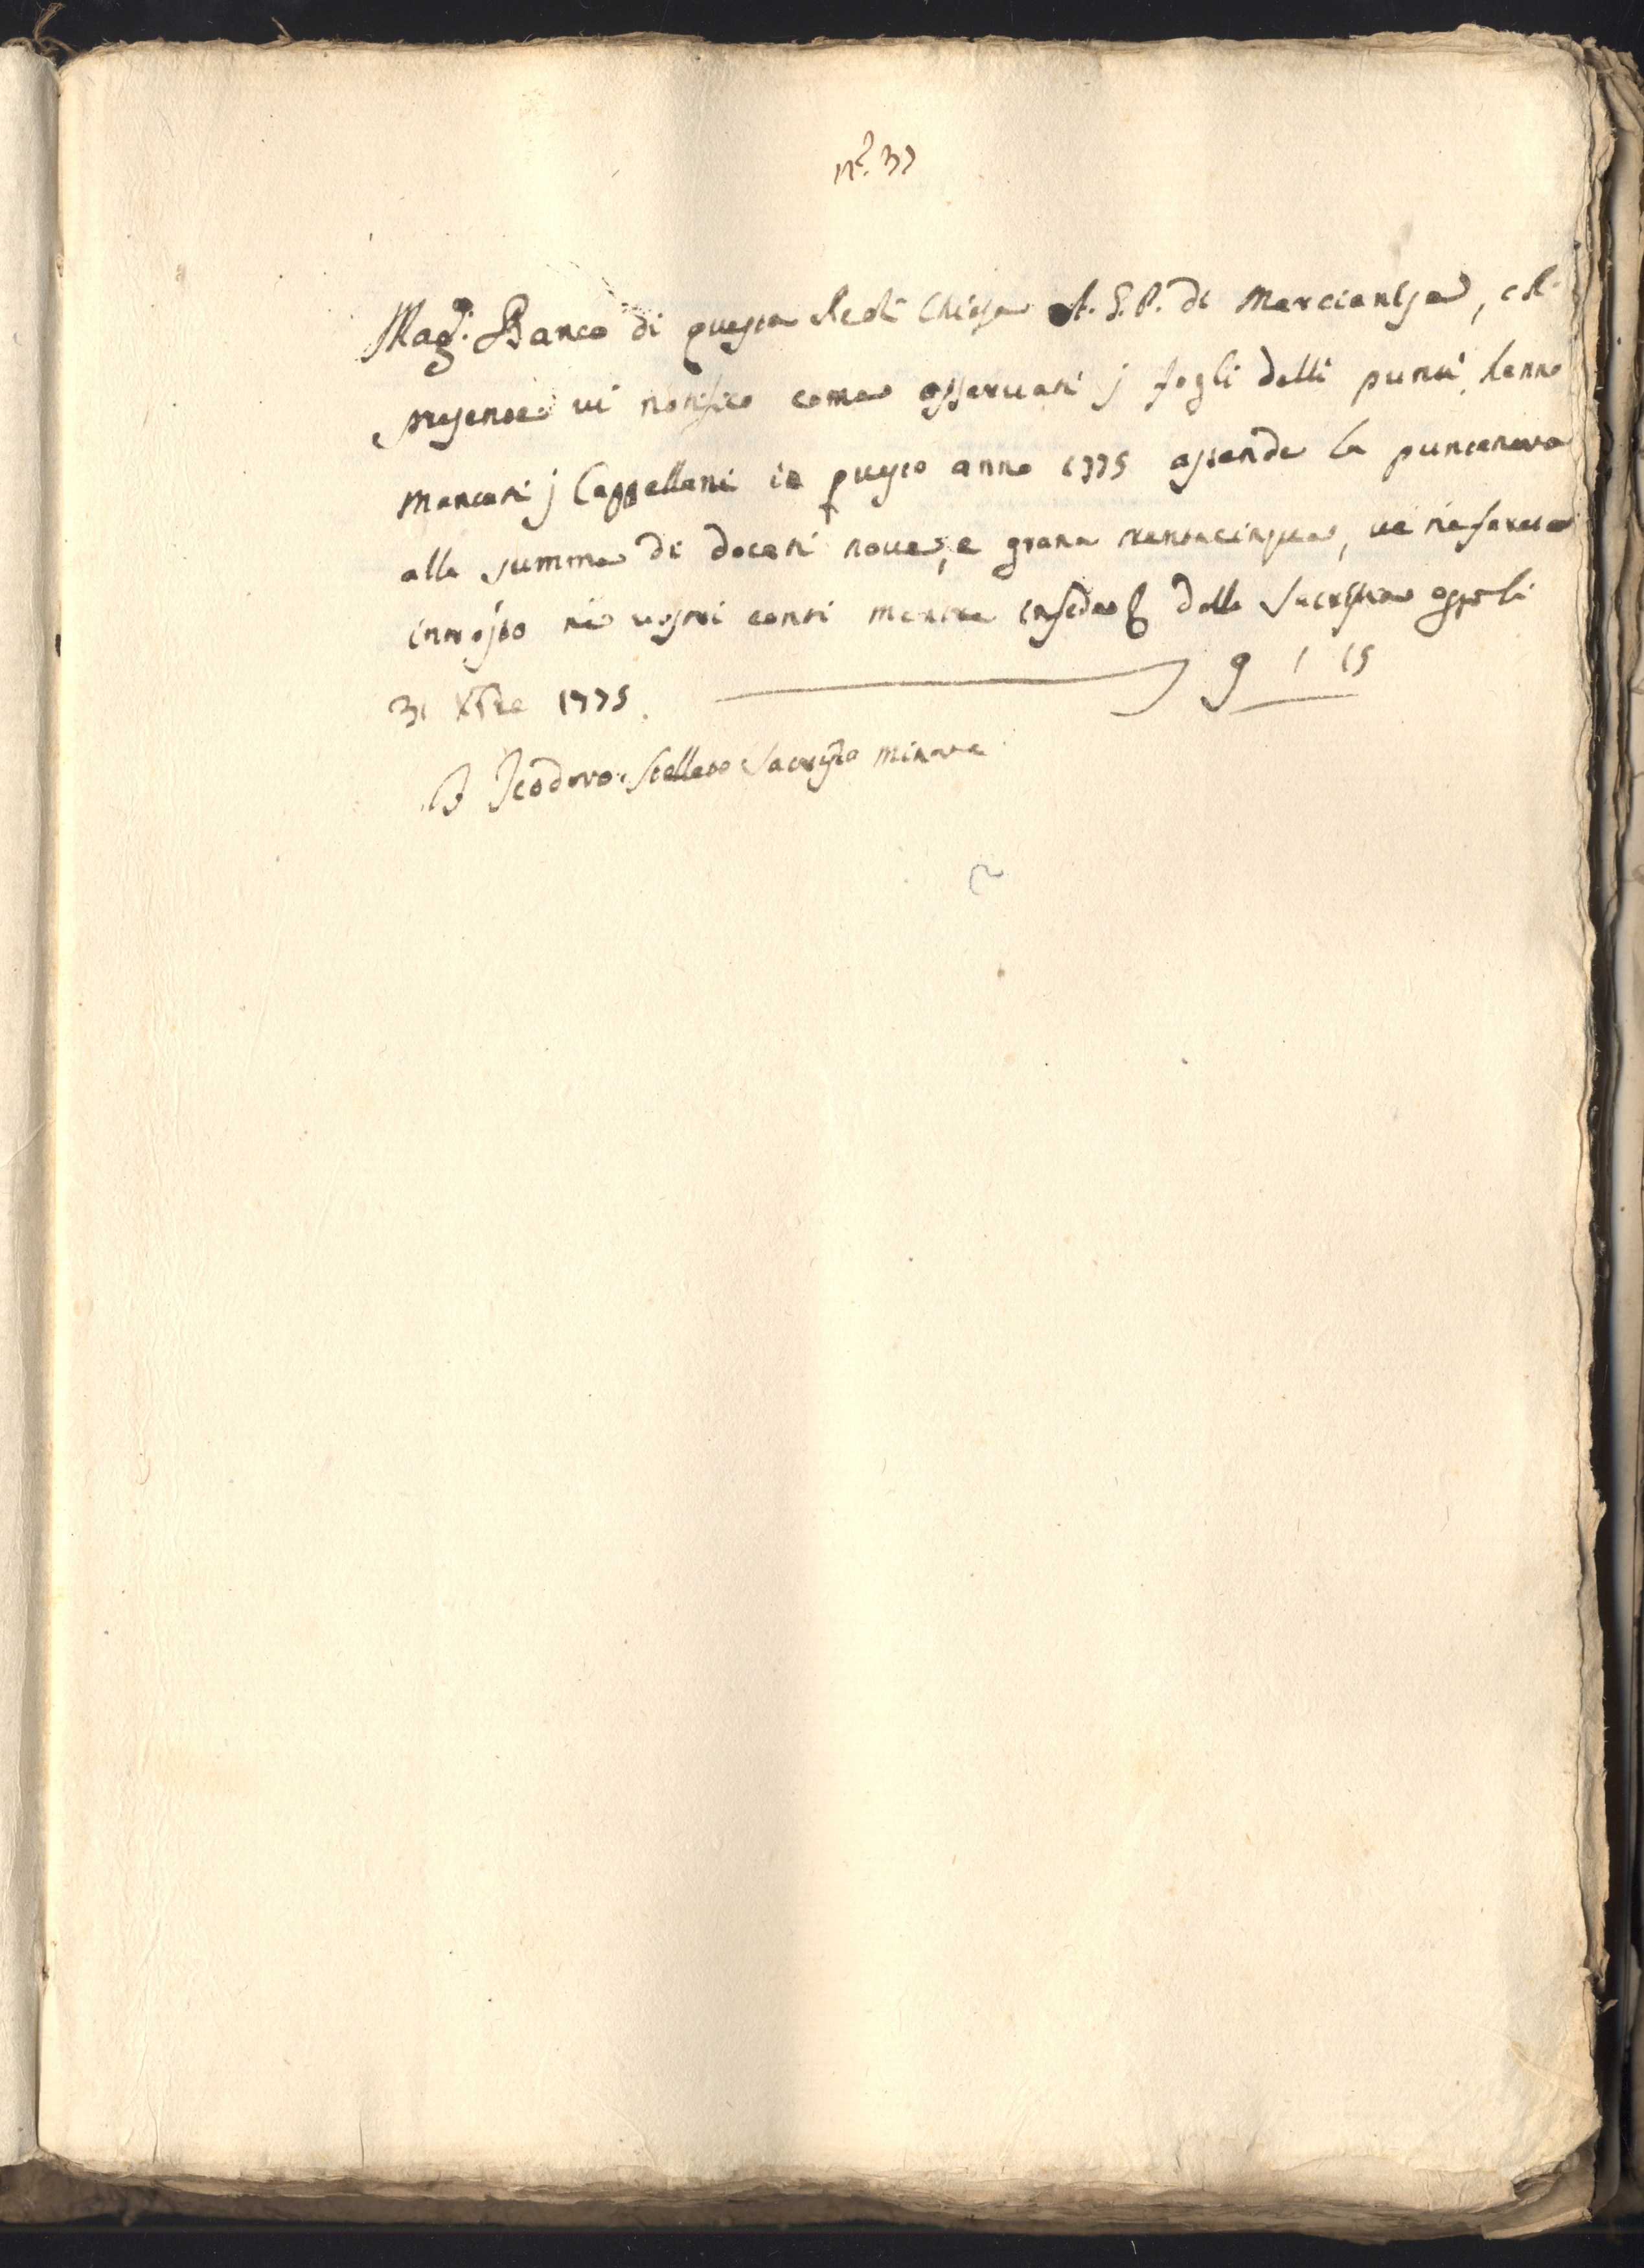 N.º 37
Mag.co Banco di questa Real Chiesa A. G. P. di Marcianisa, col
presente vi notifico come osservati j fogli delli punti, l'anno
mancati j Cappellani in questo anno 1775 ascende la puntatura
alla summa di docati nove, e grana trentacinque, ve ne farete
introito ne vostri conti mentre in fede della Sacristia oggi li
31 Xbre 1775. 9 1 15
D Teodoro Stellato Sacrista minore